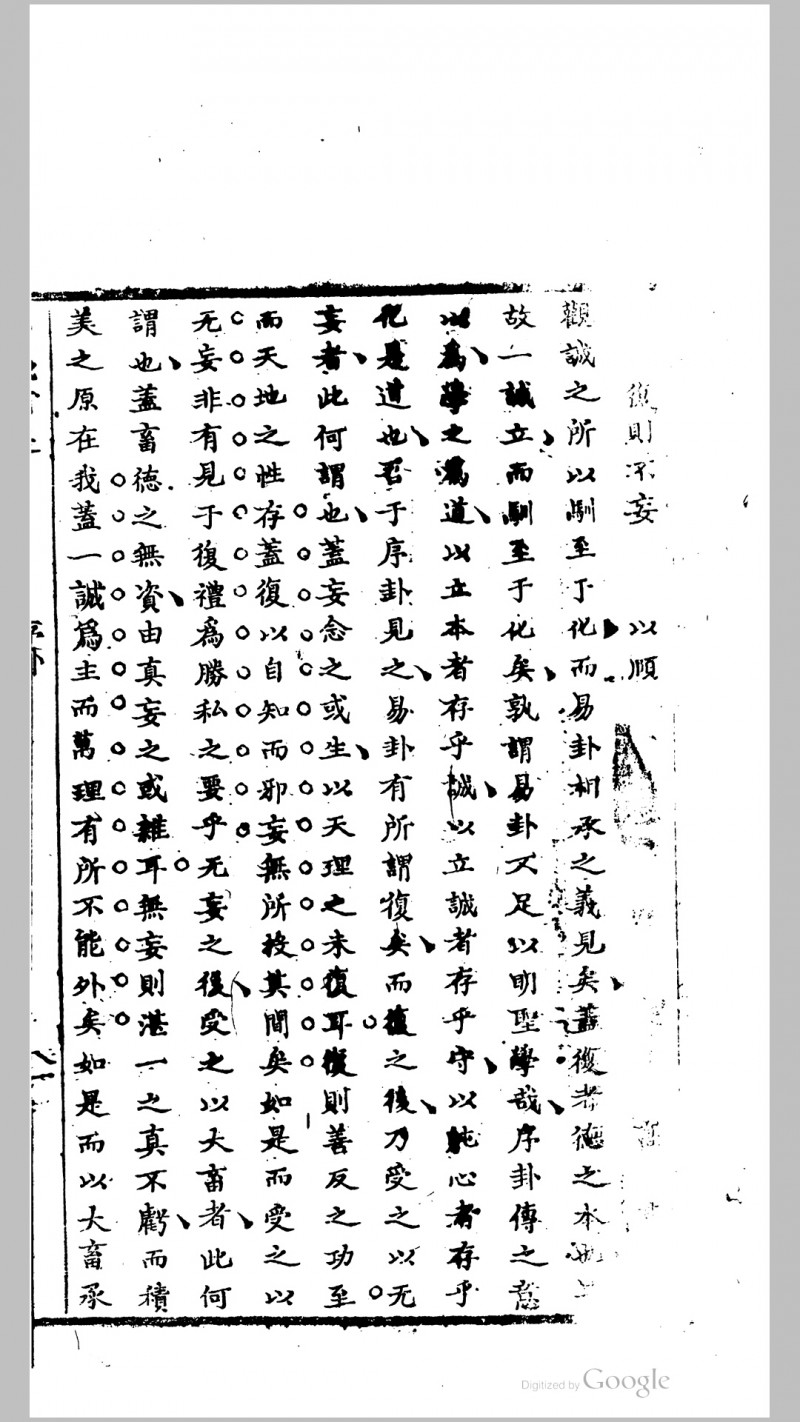 復則不妄 以順
觀誠之所以馴至于化而易卦相承之義見矣蓋復者德之本也
故一誠立而馴至于化矣孰謂易卦不足以明聖學哉序卦傳之意
以為學之為道以立本者存乎誠以立誠者存乎守以純心者存乎
化是道也吾于序卦見之易卦有所謂復矣而復之後乃受之以无
妄者此何謂也蓋妄念之或生以天理之未復耳復則善反之功至
而天地之性存蓋復以自知而邪妄無所投其間矣如是而受之以
无妄非有見于復禮為勝私之要乎无妄之後受之以大畜者此何
謂也蓋畜德之無資由真妄之或雜耳無妄則湛一之真不虧而積
美之原在我蓋一誠爲主而萬理有所不能外矣如是而以大畜承
Digitized by Google